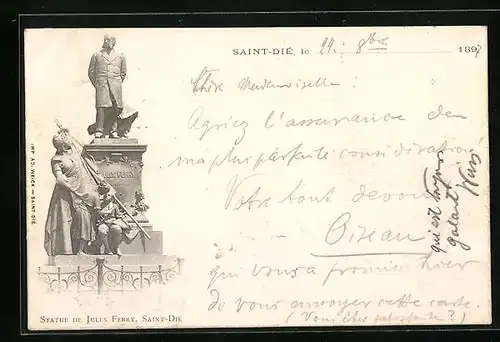 SAINT-DIÉ, le 24. 8bre 1897
Chère Mademoiselle :
Agréez l'assurance de
ma plus parfaite considération
Votre tout dévoué
Oiseau
qui vous a promis hier
de vous envoyer cette carte.
(Vous êtes satisfaite ?)
qui est toujours
galant
JULES FERRY
IMP. AD. WEICK — SAINT-DIÉ
STATUE DE JULES FERRY, SAINT-DIÉ